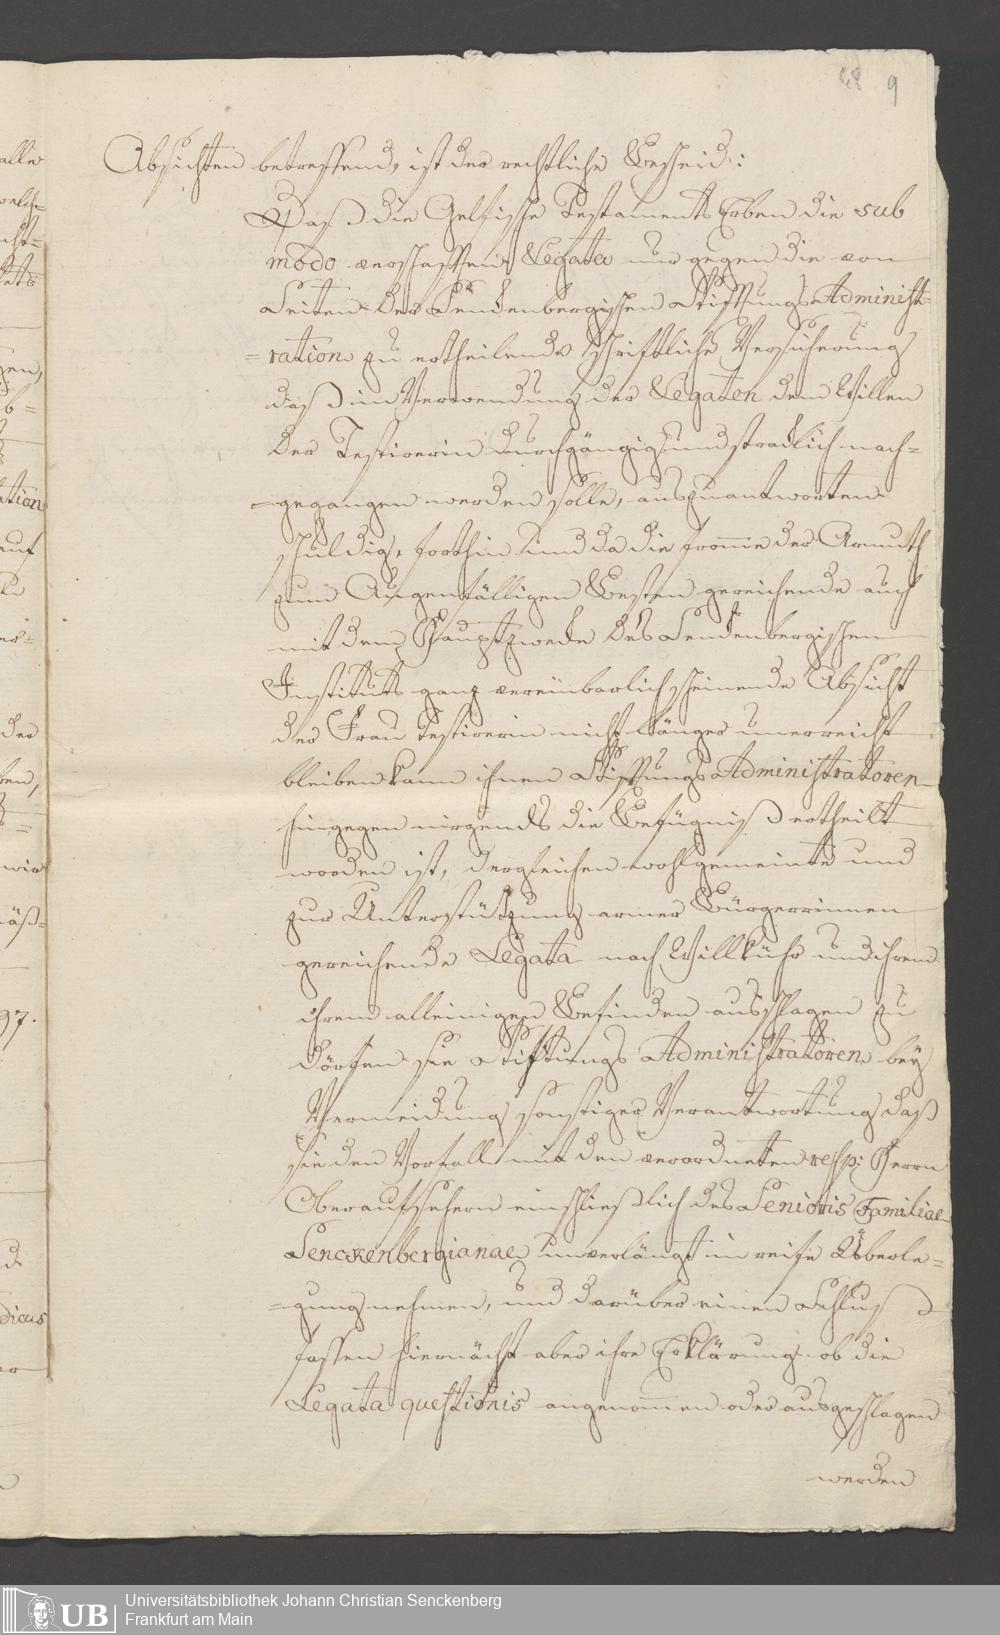 48 9
Absichten betreffend, ist der rechtliche Bescheid:
Daß die Gelfische Testaments Erben die sub
modo verschafften Legata nur gegen die von
Seiten der Senckenbergischen Stiftungs Administ-
=ration zu ertheilende schriftliche Versicherung
daß in Verwendung der Legaten dem Willen
der Testirerin durchgängig und stracklich nach=
=gegangen werden solle, auszuantworten
schuldig, forthin und da die fromme der Armuth
zum Augenfälligen Besten gereichende auch
mit dem Hauptzwecke des Senckenbergischen
Instituts ganz vereinbarlich scheinende Absicht
der Frau Testirerin nicht länger unerreicht
bleiben kann ihnen Stiftungs Administratoren
hingegen nirgends die Befügniß ertheilt
worden ist, dergleichen wohlgemeinte und
zur Unterstützung armer Bürgerrinnen
gereichende Legata nach Willkühr und ihrem
ihrem alleinigen Befinden ausschlagen zu
dörfen sie Stiftungs Administratoren bey
Vermeidung sonstiger Verantwortung daß
sie den Vorfall mit den verordneten resp: Herrn
Oberaufsehern einschließlich des Senioris Familiae
Senckenbergianae unverlängt in reife Überle=
=gung nehmen, und darüber einen Schluß
fassen hiernächst aber ihre Erklärung ob die
Legata questionis angenommen oder ausgeschlagen
werden
alle
welch=
cht=
ation
auf
der
wir
97.
dicus
UB
Universitätsbibliothek Johann Christian Senckenberg
Frankfurt am Main